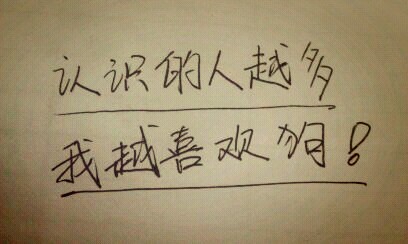 认识的人越多
我越喜欢狗！